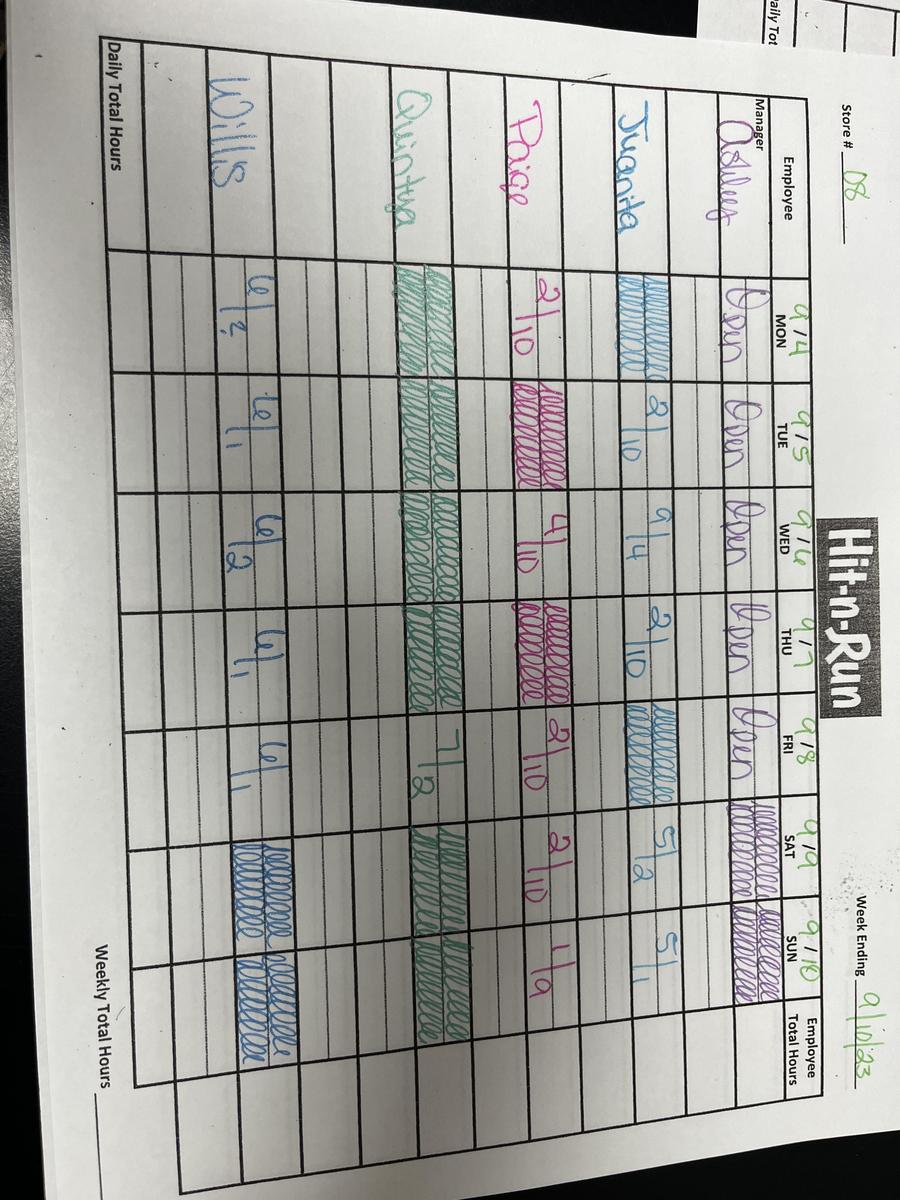 Daily Tot
Hit-n-Run
Store # 08
Week Ending 9/10/23
Employee 9/4 MON 9/5 TUE 9/6 WED 9/7 THU 9/8 FRI 9/9 SAT 9/10 SUN Employee Total Hours
Manager Ashley Open Open Open Open Open
Juanita 2/10 9/4 2/10 5/2 5/1
Paige 2/10 4/10 2/10 2/10 1/9
Quintya 7/2
Willis 6/2 6/1 6/2 6/1 6/1
Daily Total Hours
Weekly Total Hours